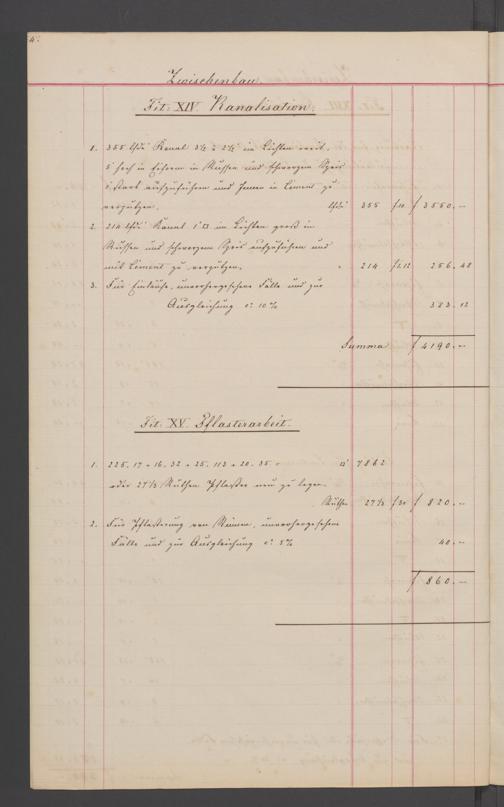 4.
Zwischenbau.
Tit: XIV Kanalisation.
1. 355 lfd' Kanal 3½ = 2½' im Lichten weit,
5' hoch in Eichern in Mussen und schwarzem Speis
aufzuführen und Innen in Cement zu
verputzen. lfd' 355 f 10 f 3550.–
2. 214 lfd' Kanal 1'□ im Lichten groß in
und schwarzem Speis aufzuführen und
mit Cement zu verputzen. " 214 f 1.12 256.48
3. Für Einläufe, unvorhergesehene Fälle und zur
Ausgleichung c: 10 % 383.12
Summa f 4190.–
Tit: XV. Pflasterarbeit.
1. 225. 17 + 16. 32 + 25. 112 + 20. 35 = □' 7862
oder 27⅓ Ruthen Pflaster neu zu legen.
Ruthe 27⅓ f 30 f 820.–
2. Für Pflasterung von Rinnen, unvorhergesehene
Fälle und zur Ausgleichung c: 5 % 40.–
f 860.–